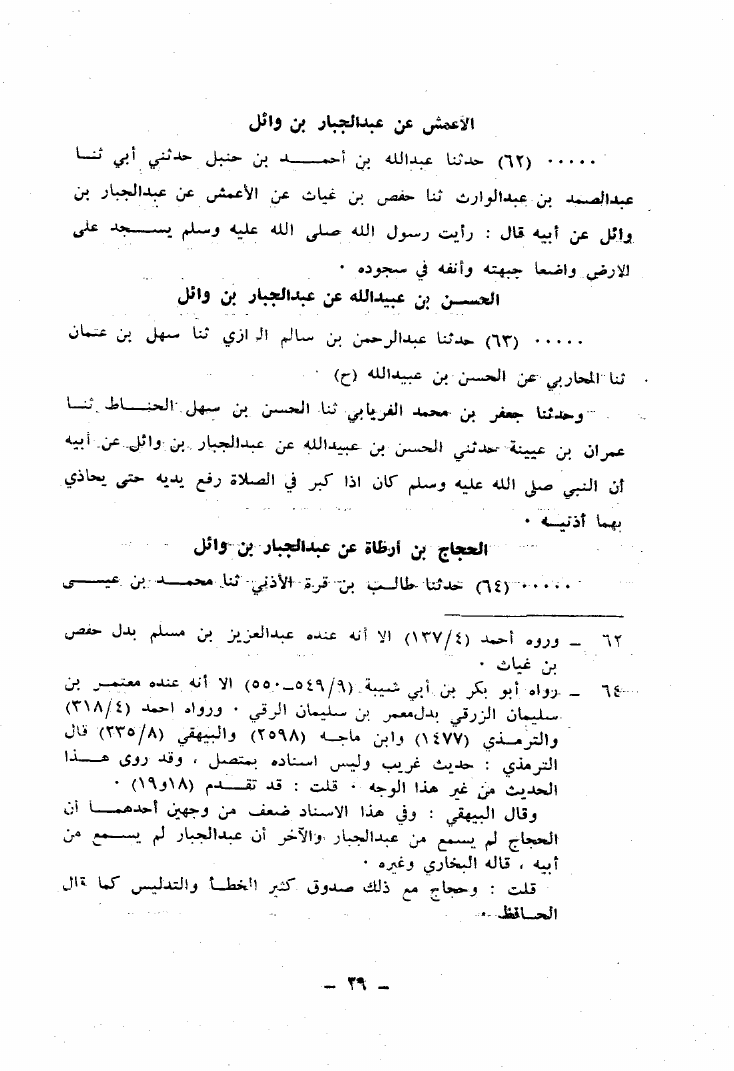 الأعمش عن عبدالجبار بن وائل
..... (٦٢) حدثنا عبدالله بن أحمد بن حنبل حدثني أبي ثنا
عبدالصمد بن عبدالوارث ثنا حفص بن غياث عن الأعمش عن عبدالجبار بن
وائل عن أبيه قال : رأيت رسول الله صلى الله عليه وسلم يسجد على
الارض واضعا جبهته وأنفه في سجوده .
الحسن بن عبيدالله عن عبدالجبار بن وائل
..... (٦٣) حدثنا عبدالرحمن بن سالم الرازي ثنا سهل بن عثمان
ثنا المحاربي عن الحسن بن عبيدالله (ح)
وحدثنا جعفر بن محمد الفريابي ثنا الحسن بن سهل الحناط ثنا
عمران بن عيينة حدثني الحسن بن عبيدالله عن عبدالجبار بن وائل عن أبيه
أن النبي صلى الله عليه وسلم كان اذا كبر في الصلاة رفع يديه حتى يحاذي
بهما أذنيه .
الحجاج بن أرطاة عن عبدالجبار بن وائل
..... (٦٤) حدثنا طالب بن قرة الأذني ثنا محمد بن عيسى
٦٢ – وروه أحمد (١٣٧/٤) الا أنه عنده عبدالعزيز بن مسلم بدل حفص
بن غياث .
٦٤ – رواه أبو بكر بن أبي شيبة (٥٤٩/٩–٥٥٠) الا أنه عنده معتمر بن
سليمان الزرقي بدل معمر بن سليمان الرقي . ورواه احمد (٣١٨/٤)
والترمذي (١٤٧٧) وابن ماجه (٢٥٩٨) والبيهقي (٢٣٥/٨) قال
الترمذي : حديث غريب وليس اسناده بمتصل ، وقد روى هذا
الحديث من غير هذا الوجه . قلت : قد تقدم (١٨و١٩) .
وقال البيهقي : وفي هذا الاسناد ضعف من وجهين أحدهما أن
الحجاج لم يسمع من عبدالجبار والآخر أن عبدالجبار لم يسمع من
أبيه ، قاله البخاري وغيره .
قلت : وحجاج مع ذلك صدوق كثير الخطأ والتدليس كما قال
الحافظ .
– ٢٩ –